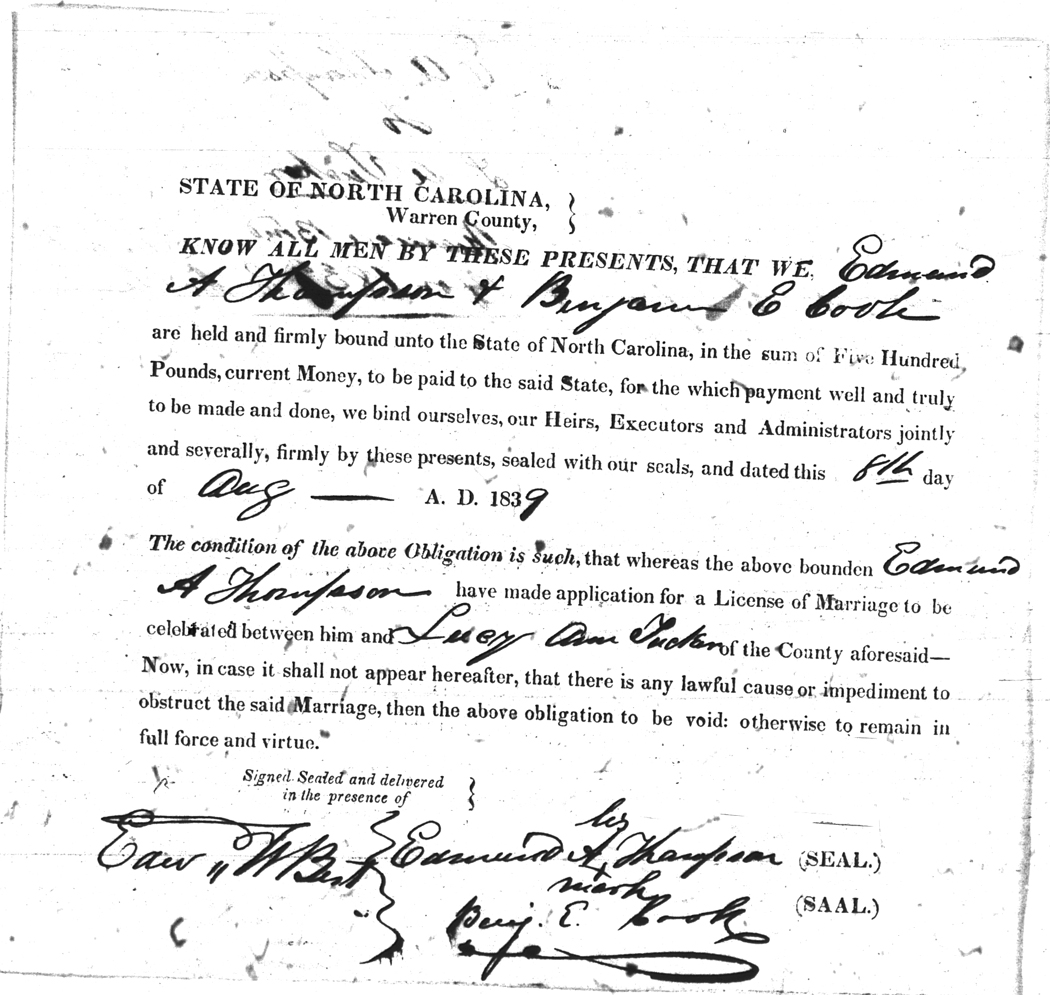 STATE OF NORTH CAROLINA,
Warren County,
KNOW ALL MEN BY THESE PRESENTS, THAT WE, Edmund
A Thompson & Benjamin E Cook
are held and firmly bound unto the State of North Carolina, in the sum of Five Hundred
Pounds, current Money, to be paid to the said State, for the which payment well and truly
to be made and done, we bind ourselves, our Heirs, Executors and Administrators jointly
and severally, firmly by these presents, sealed with our seals, and dated this 8th day
of Aug A. D. 1839
The condition of the above Obligation is such, that whereas the above bounden Edmund
A Thompson have made application for a License of Marriage to be
celebrated between him and Lucy Ann Tucker of the County aforesaid—
Now, in case it shall not appear hereafter, that there is any lawful cause or impediment to
obstruct the said Marriage, then the above obligation to be void: otherwise to remain in
full force and virtue.
Signed Sealed and delivered
in the presence of
his
Edw W Best Edmund A Thompson (SEAL.)
mark
Benj. E. Cook (SAAL.)